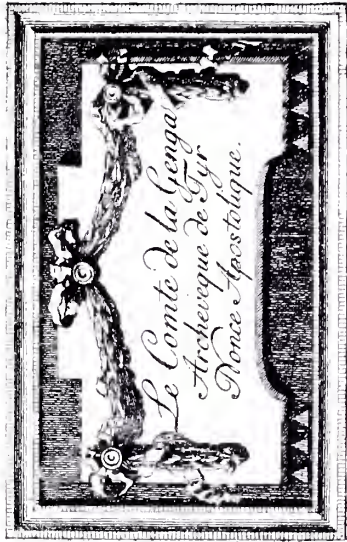 Le Comte de la Genga
Archevêque de Tyr
Nonce Apostolique.